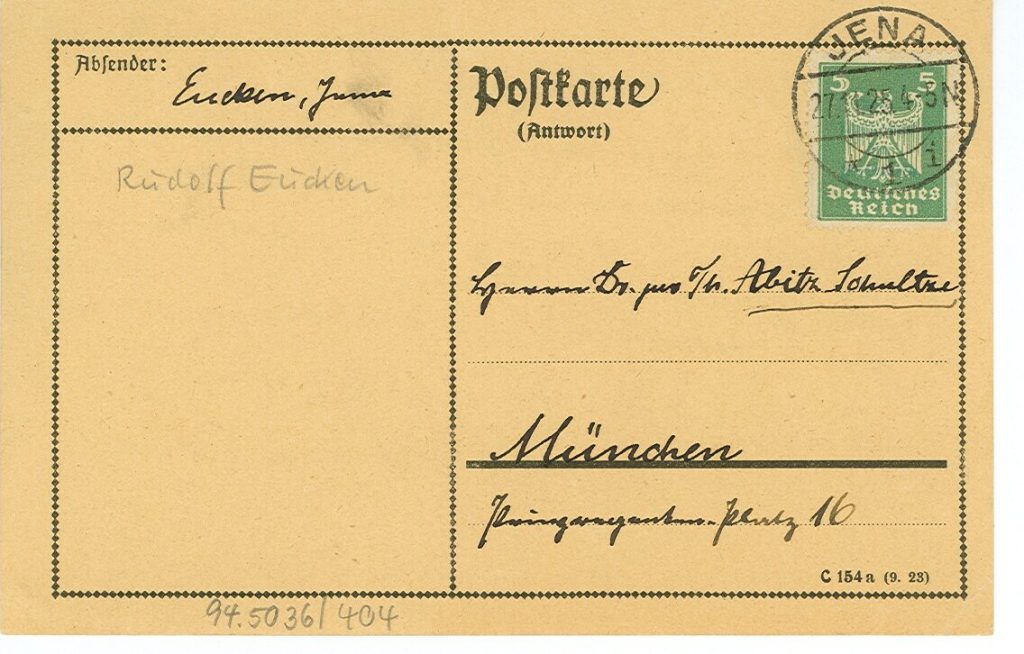 Absender:
Eucken, Jena
Rudolf Eucken
Postkarte
(Antwort)
JENA
27. 25 4-5N
* 1 i
5 5
Deutsches
Reich
Herrn Dr. Abitz Schultze
München
Prinzregenten-Platz 16
C 154 a (9. 23)
94.5036/404